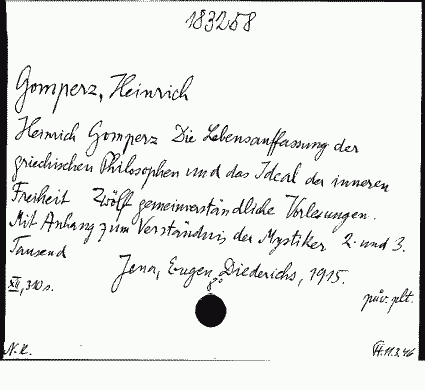 183258
Gomperz, Heinrich
Heinrich Gomperz Die Lebensauffassung der
griechischen Philosophen und das Ideal der inneren
Freiheit Zwölf gemeinverständliche Vorlesungen.
Mit Anhang zum Verständnis der Mystiker 2. und 3.
Tausend
Jena, Eugen Diederichs, 1915.
XII, 310 s.
8°
pův. plt.
N.K.
H.11.3.46